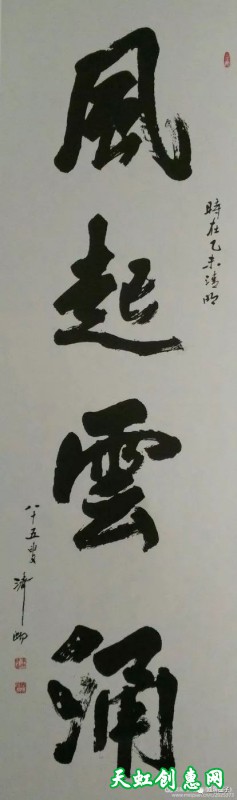 風起雲涌
時在乙未清明
八十五叟
天虹创惠网